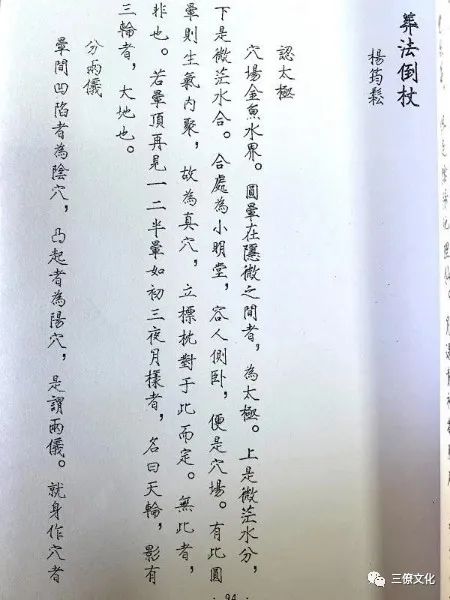 葬法倒杖
楊筠鬆
認太極
穴場金魚水界。圓暈在隱微之間者,為太極。上是微茫水分,
下是微茫水合。合處為小明堂,容人側卧,便是穴場。有此圓
暈則生氣內聚,故為真穴,立標枕對于此而定。無此者,
非也。若暈頂再見一二半暈如初三夜月樣者,名曰天輪,影有
三輪者,大地也。
分兩儀
暈間凹陷者為陰穴,凸起者為陽穴,是謂兩儀。就身作穴者
· 94 ·
三僚文化